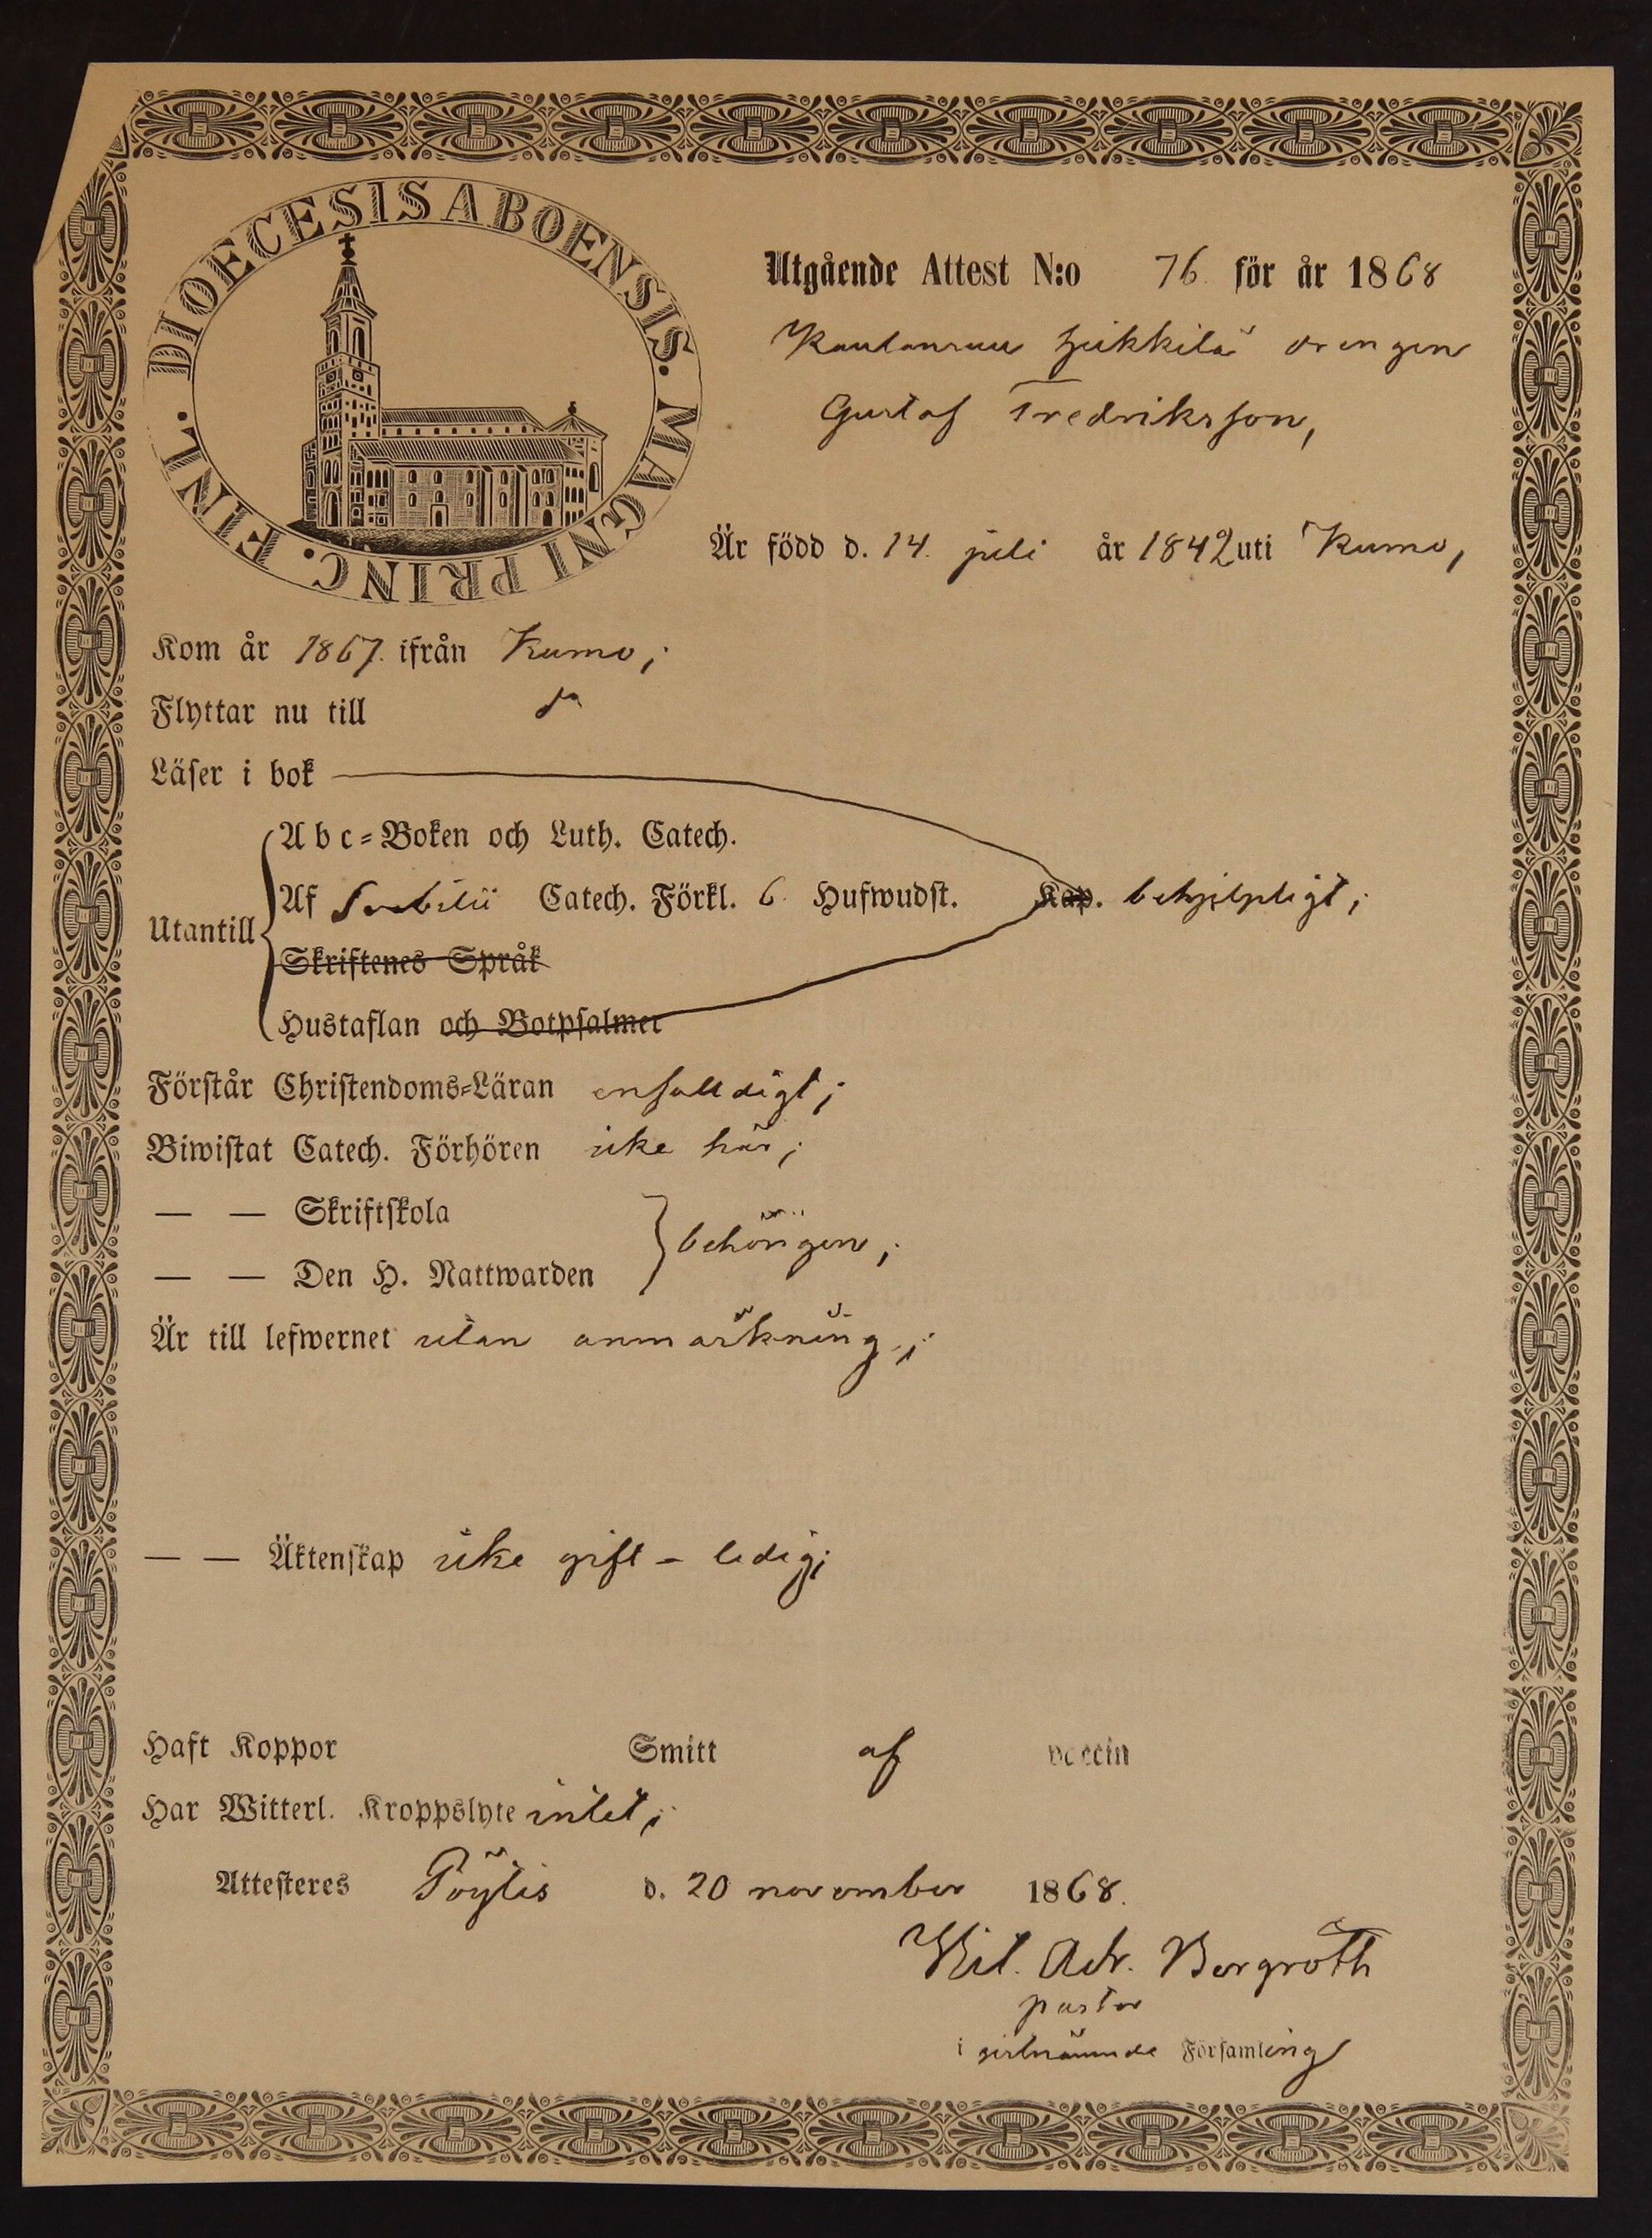 DIOECESIS ABOENSIS. MAGNI PRINC. FINL.
Utgående Attest N:o 76. för år 1868
Heikkilä drengen
Gustaf Fredriksson,
Är född d. 14. juli år 1842 uti Kumo,
Kom år 1867. ifrån Kumo;
Flyttar nu till do
Läser i bok
Utantill
Abc-Boken och Luth. Catech.
Af Svebilii Catech. Förkl. 6. Hufwudst. Kap. behjelpligt;
Skriftenes Språk
Hustaflan och Botpsalmer
Förstår Christendoms-Läran enfalldigt;
Biwistat Catech. Förhören icke här;
— — Skriftskola
behörigen;
— — Den H. Nattwarden
Är till lefwernet utan anmärkning;
— — Äktenskap icke gift - ledig;
Haft Koppor Smitt af vaccin
Har Witterl. Kroppslyte intet;
Attesteres Pöytis d. 20 november 1868.
Wil. Adr. Bergroth
pastor
i sistnämnde Församling